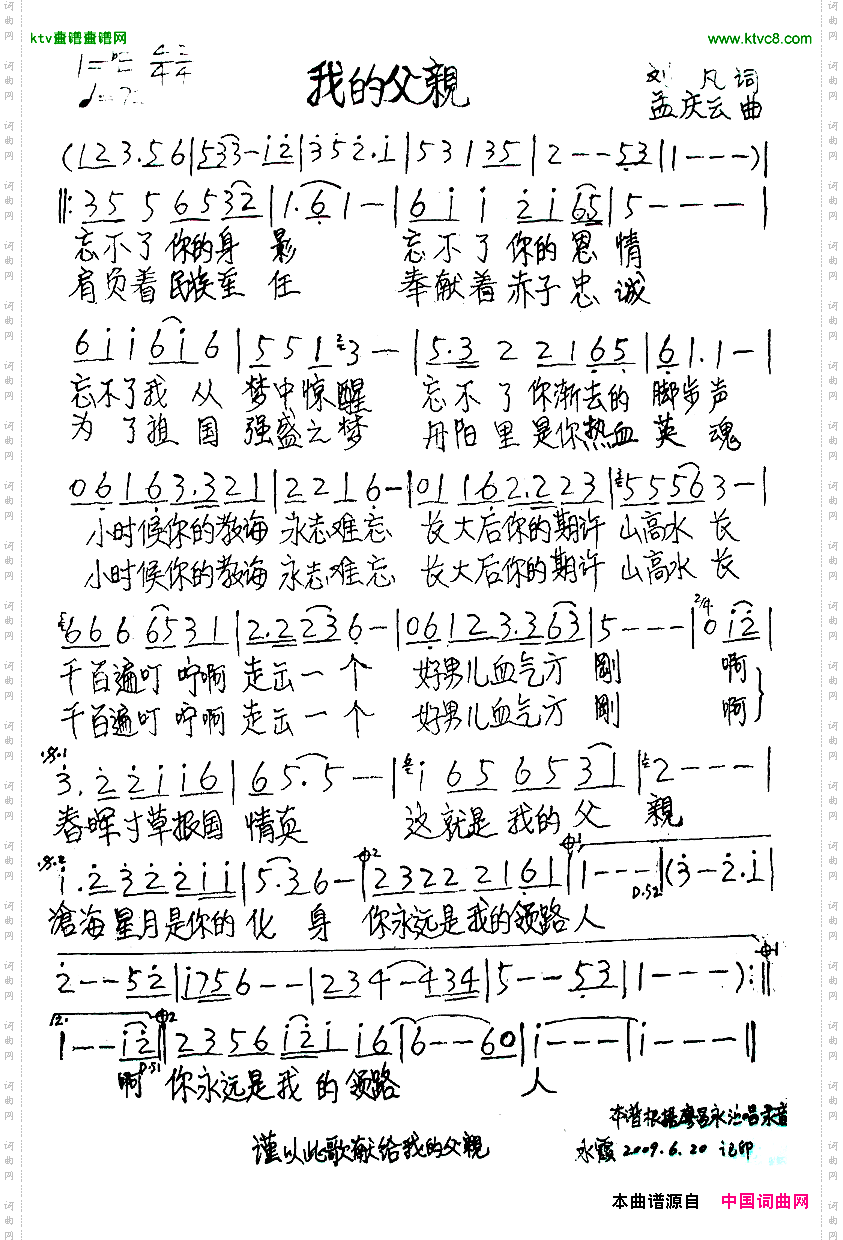 ktv曲谱曲谱网
www.ktvc8.com
我的父親
刘凡词
孟庆云曲
(1 2 3.5 6|5 3 3-i 2|3 5 2.i|5 3 1 3 5|2--5 3|1---)|
||:3 5 5 6 5 3 2|1.6 1-|6 i i 2 i 6 5|5---|
忘不了你的身影 忘不了你的恩情
肩负着民族重任 奉献着赤子忠诚
6 i i 6 i 6|5 5 1 3-|5.3 2 2 1 6 5|6 1.1-|
忘不了我从梦中惊醒 忘不了你渐去的脚步声
为了祖国强盛之梦 丹阳里是你热血英魂
0 6 1 6 3.3 2 1|2 2 1 6-|0 1 1 6 2.2 2 3|5 5 5 6 3-|
小时候你的教诲 永志难忘 长大后你的期许 山高水长
小时候你的教诲 永志难忘 长大后你的期许 山高水长
6 6 6 6 5 3 1|2.2 2 3 6-|0 6 1 2 3.3 6 3|5---|2/4 0 i 2|
千百遍叮咛啊 走出一个 好男儿血气方刚 啊
千百遍叮咛啊 走出一个 好男儿血气方刚 啊
3.2 2 i i 6|6 5.5-|i 6 5 6 5 3 1|2---|
春晖寸草报国情真 这就是我的父親
i.2 3 2 2 i i|5.3 6-|2 3 2 2 2 1 6 1|1---|(3-2.i|
D.S2
滄海星月是你的化身 你永远是我的领路人
2--5 2|i 7 5 6--|2 3 4-4 3 4|5--5 3|1---):||
12.
1--i 2||2 3 5 6 i 2 i i 6|6--6 0|i---|i---||
啊 D.S1 你永远是我的领路 人
本谱根据廖昌永演唱录音
谨以此歌献给我的父親
水霞2009.6.20记印
本曲谱源自 中国词曲网
词曲网